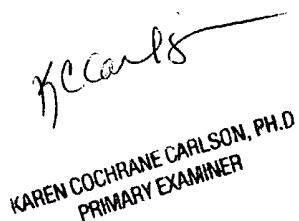 KCCarlson
KAREN COCHRANE CARLSON, PH.D
PRIMARY EXAMINER